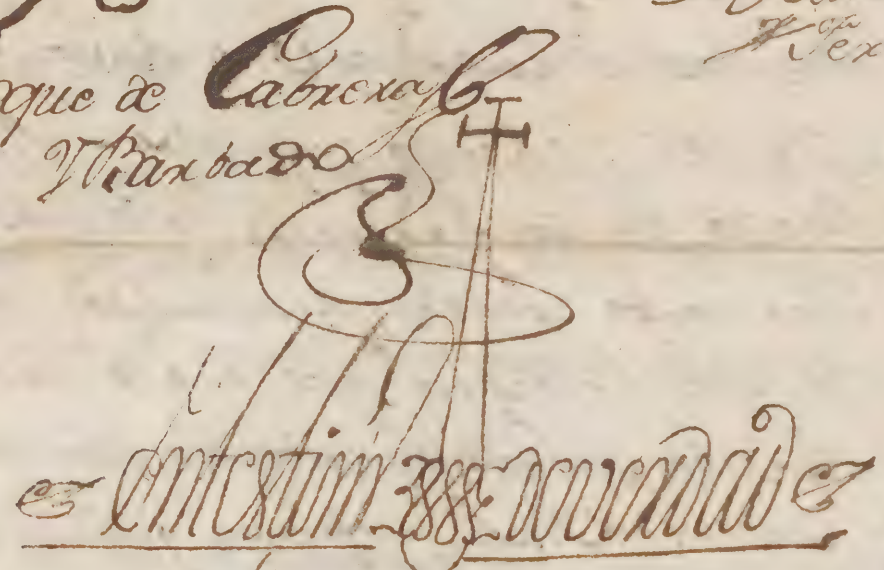 que de Cabrera
Y Barbado
en testim de verdad